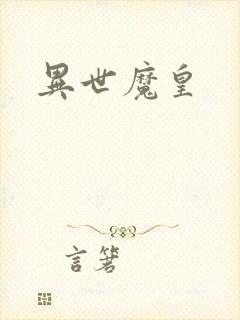 異世魔皇
言箸